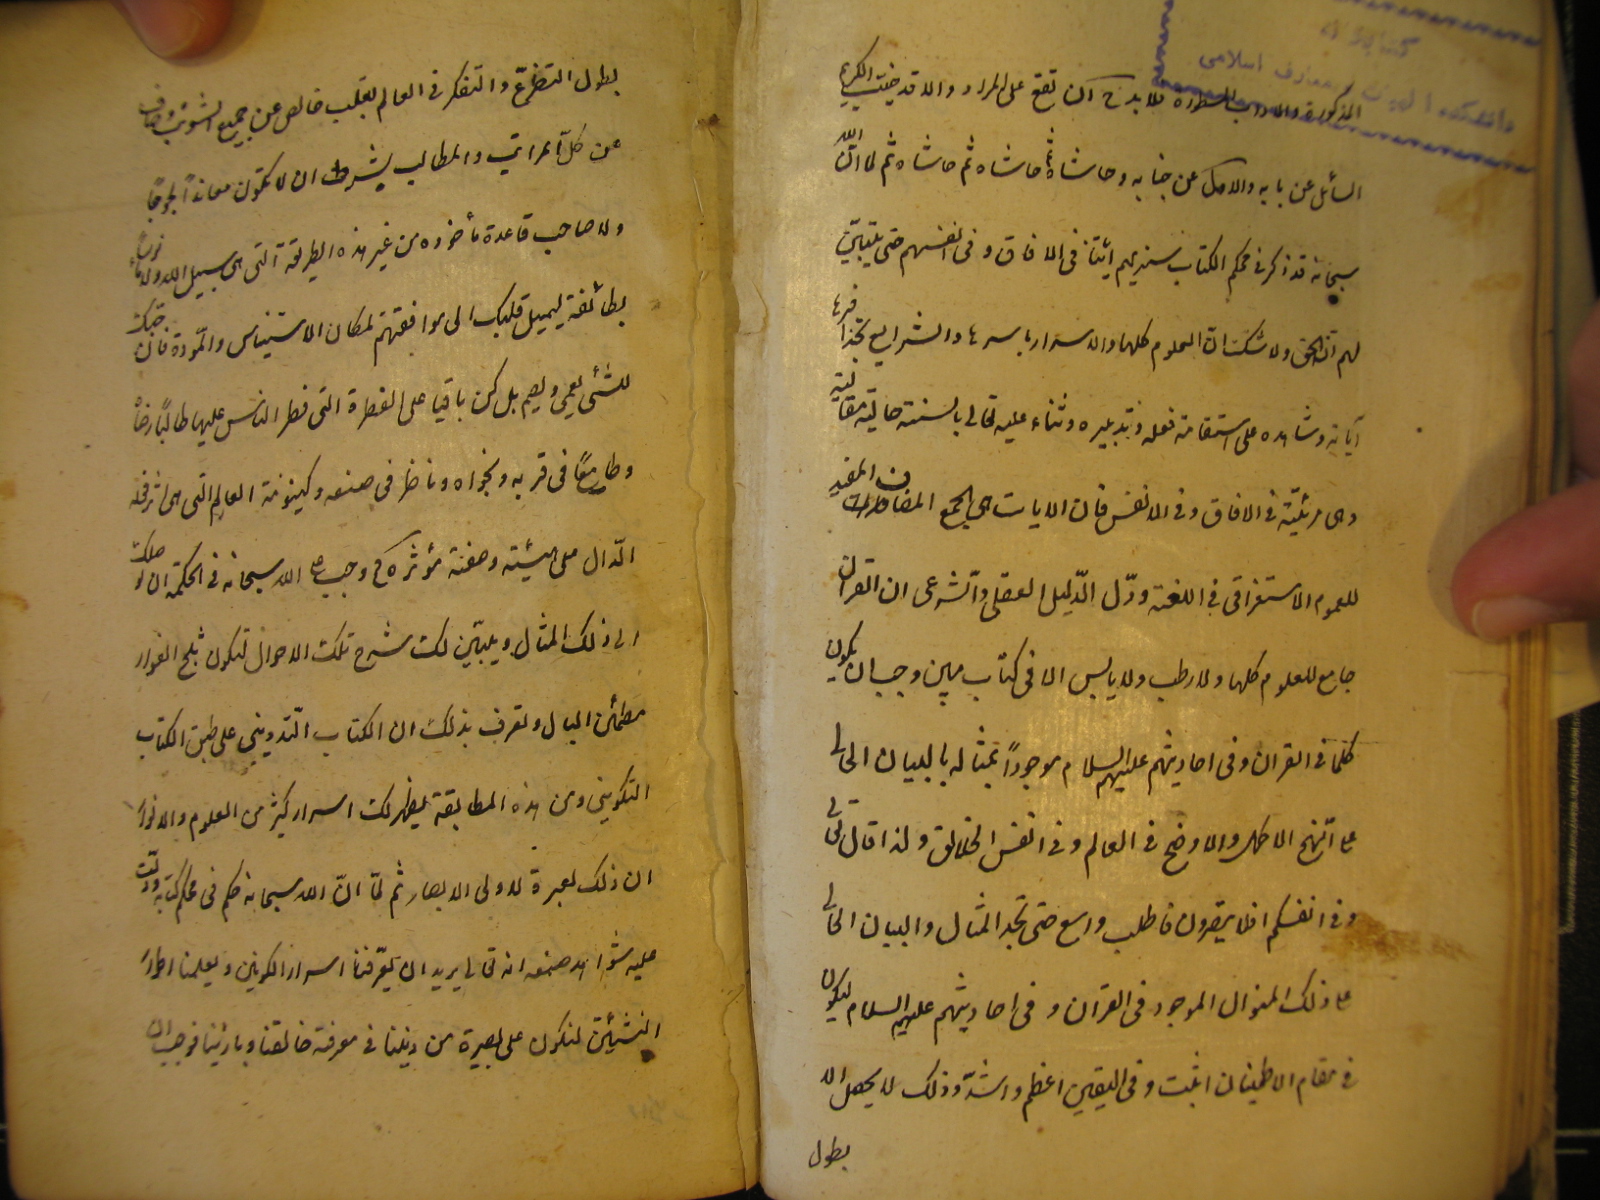 المذكورة والاداب المسطورة فلا بد آن تقع على المراد والا قد خيبت الكريم
السائل عن بابه والامل عن جنابه وحاشاه ثم حاشاه ثم حاشاه ثم لما ان الله
سبحانه قد ذكر في محكم الكتاب سنريهم اياتنا في الافاق وفي انفسهم حتى يتبين
لهم انه الحق ولا شك ان العلوم كلها والاسرار باسرها والشرايع بحذافيرها
آياته وشاهده على استقامة فعله وتدبيره وثناء عليه تعالى بالسنة حالية مقالية
وهي مرئية في الافاق وفي الانفس فان الايات هي الجمع المضاف المفيد
للعموم الاستغراقي في اللغة ودل الدليل العقلي والشرعي ان القران
جامع للعلوم كلها ولا رطب ولا يابس الا في كتاب مبين وجب ان يكون
كلما في القران وفي احاديثهم عليهم السلام موجوداً بمثاله بالبيان الحالي
على النهج الاكمل والاوضح في العالم وفي انفس الخلائق ولذا قال تعالى
وفي انفسكم افلا تبصرون فاطلب واسع حتى تجد المثال والبيان الحالي
على ذلك المنوال الموجود في القران وفي احاديثهم عليهم السلام ليكون
في مقام الاطمينان اثبت وفي اليقين اعظم واشد وذلك لا يحصل الا
بطول
بطول التضرع والتفكر في العالم بقلب خالص عن جميع الشوائب وصاف
عن كل المراتب والمطالب بشرط ان لا تكون معانداً لجوجاً
ولا صاحب قاعدة مأخوذه من غير هذه الطريقة التي هي سبيل الله ولا مأنوساً
بطائفة ليميل قلبك الى موافقتهم لمكان الاستيناس والمودة فان حبك
للشئ يعمي ويصم بل كن باقيا على الفطرة التي فطر الناس عليها طالباً رضاه
وطامعاً في قربه ونجواه وناظر في صنعه وكينونة العالم التي هي اثر فعله
الدال على هيئته وصفة مؤثره وجب على الله سبحانه في الحكمة ان يوصلك
الى ذلك المثال ويبين لك شرح تلك الاحوال لتكون ثلج الفواد
مطمئن البال وتعرف بذلك ان الكتاب التدويني على طبق الكتاب
التكويني ومن هذه المطابقة يظهر لك اسرار كثيرة من العلوم والانوار
ان ذلك لعبرة لاولى الابصار ثم لما ان الله سبحانه حكم في محكم كتابه ودلت
عليه شواهد صنعه انه تعالى يريد ان يعرفنا اسرار الكونين ويعلمنا اطوار
النشئتين لنكون على بصيرة من ديننا في معرفة خالقنا وبارئنا فوجب ان